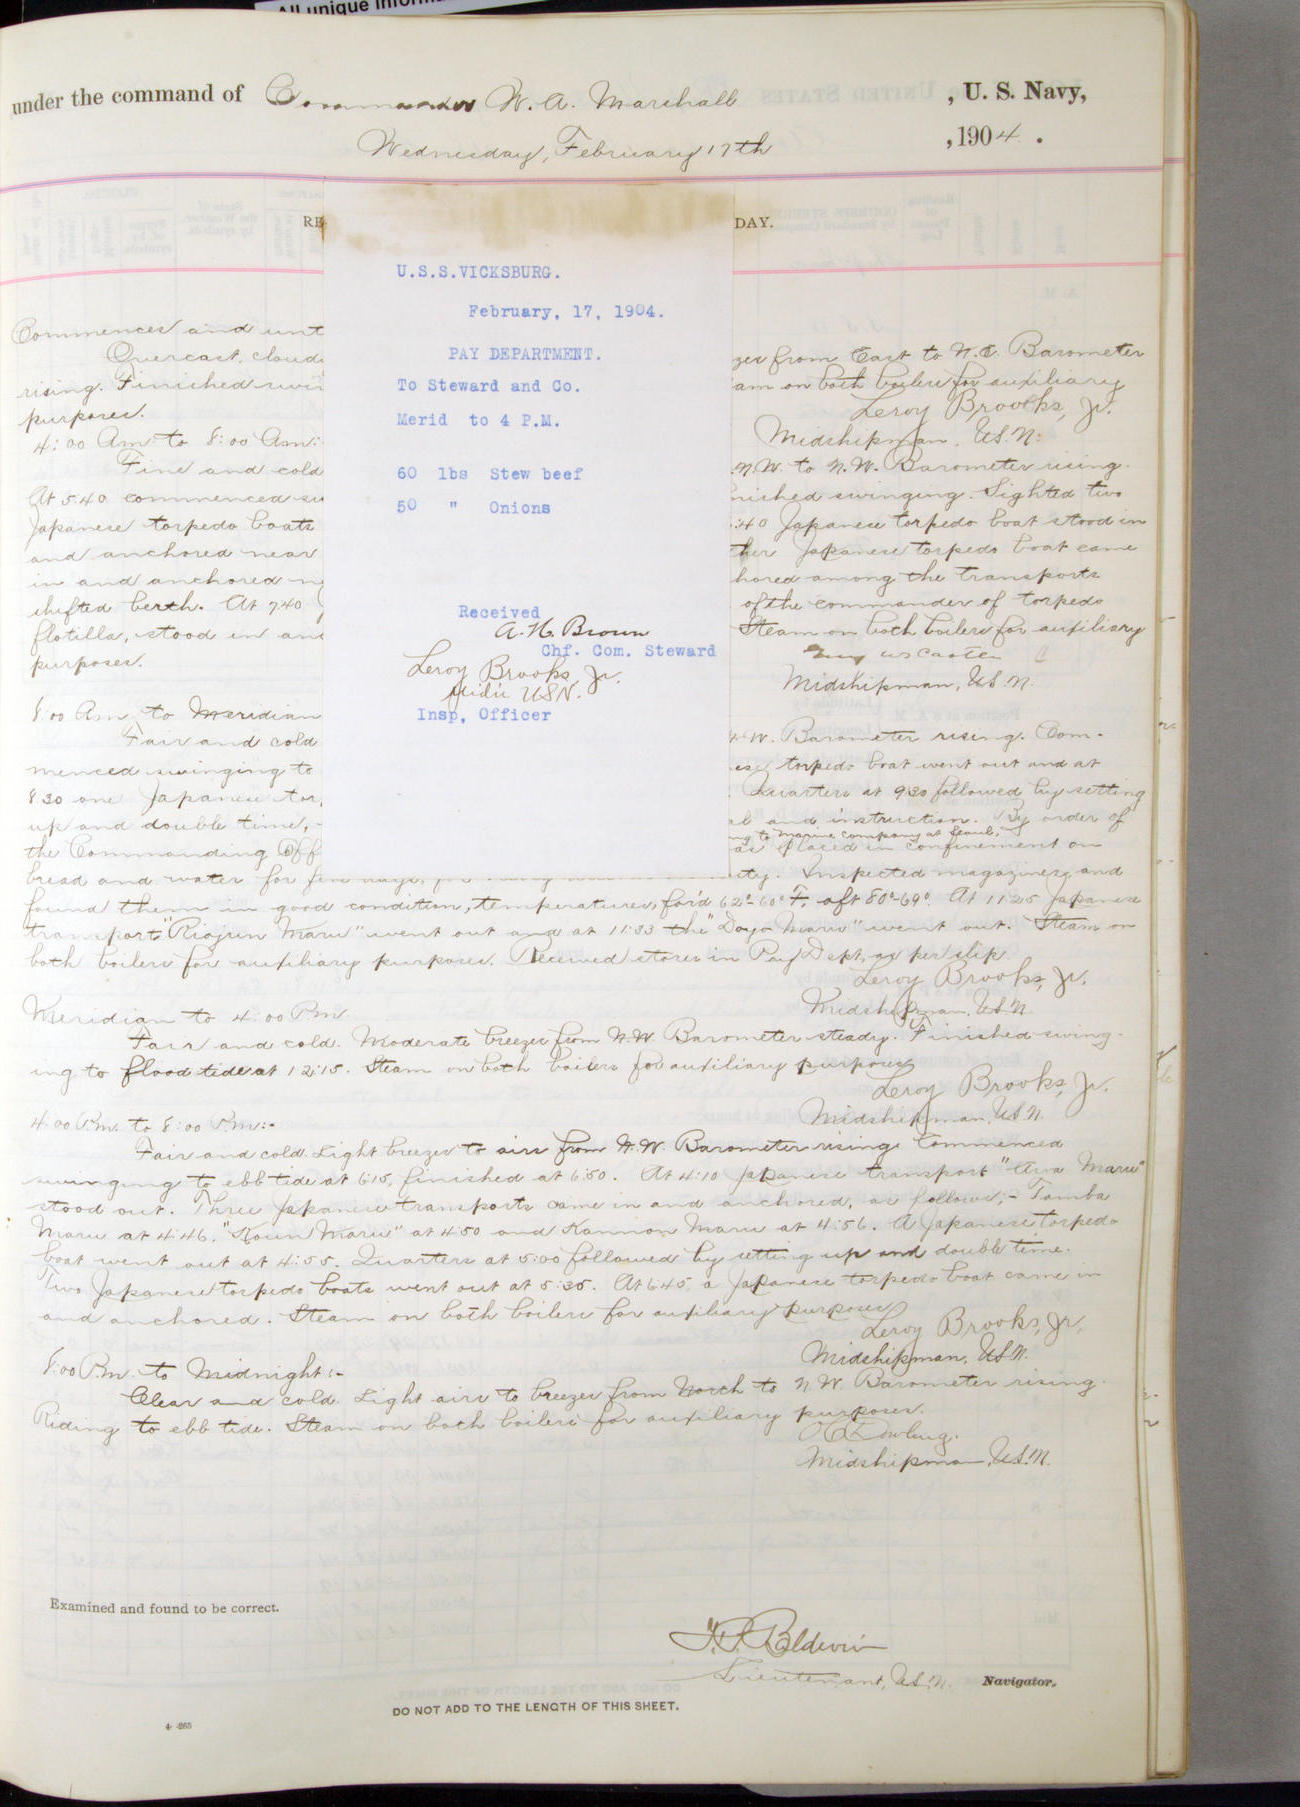 All unique inform
under the command of Commander W. A. Marshall , U. S. Navy,
Wednesday, February 17th , 1904 .
RE
DAY.
U.S.S.VICKSBURG.
February, 17, 1904.
PAY DEPARTMENT.
To Steward and Co.
Merid to 4 P.M.
60 lbs Stew beef
50 " Onions
Received
A. H. Brown
Chf. Com. Steward
Leroy Brooks Jr.
Midn USN.
Insp, Officer
Commences and unt
Overcast, cloud zes from East to N.E. Barometer
rising. Finished swin am on both boilers for auxiliary
purposes.
Leroy Brooks, Jr.
Midshipman, U.S.N.
4:00 Am to 8:00 Am:
Fine and cold N.W. to N.W. Barometer rising.
At 5 40 commenced sw nished swinging. Sighted two
Japanese torpedo boats :40 Japanese torpedo boat stood in
and anchored near ther Japanese torpedo boat came
in and anchored n hored among the transports
shifted berth. At 7 40 of the commander of torpedo
flotilla, stood in and Steam on both boilers for auxiliary
purposes.
Midshipman, U.S.N.
8:00 Am to Meridian
Fair and cold W. Barometer rising. Com-
menced swinging to ese torpedo boat went out and at
8 30 one Japanese tor Quarters at 9:30 followed by setting
up and double time, and instruction. By order of
ng to Marine Company at Seoul,
the Commanding Off as placed in confinement on
bread and water for five days, ty. Inspected magazines and
found them in good condition, temperatures, for'd 62°-60° F. aft 80°-69°. At 11:25 Japanese
transport "Riojun Maru" went out and at 11:33 the "Doyo Maru" went out. Steam on
both boilers for auxiliary purposes. Received stores in Pay Dept, as per slip.
Leroy Brooks, Jr.
Midshipman, U.S.N.
Meridian to 4:00 P.m
Fair and cold. Moderate breezes from N.W. Barometer steady. Finished swing-
ing to flood tide at 12:15. Steam on both boilers for auxiliary purposes
Leroy Brooks, Jr.
Midshipman, U.S.N.
4:00 P.m. to 8:00 P.m:-
Fair and cold. Light breezes to airs from N.W. Barometer rising. Commenced
swinging to ebb tide at 6:15, finished at 6:50. At 4:10 Japanese transport "Awa Maru"
stood out. Three Japanese transports came in and anchored, as follows;- Tamba
Maru at 4:46, "Koun Maru" at 4:50 and Kannon Maru at 4:56. A Japanese torpedo
boat went out at 4:55. Quarters at 5:00 followed by setting up and double time.
Two Japanese torpedo boats went out at 5:35. At 6:45, a Japanese torpedo boat came in
and anchored. Steam on both boilers for auxiliary purposes
Leroy Brooks, Jr.
Midshipman, U.S.N.
8:00 P.m. to Midnight:-
Clear and cold. Light airs to breezes from North to N.W. Barometer rising.
Riding to ebb tide. Steam on both boilers for auxiliary purposes.
Dowling.
Midshipman, U.S.N.
Examined and found to be correct.
Baldwin
Lieutenant, U.S.N. Navigator.
DO NOT ADD TO THE LENGTH OF THIS SHEET.